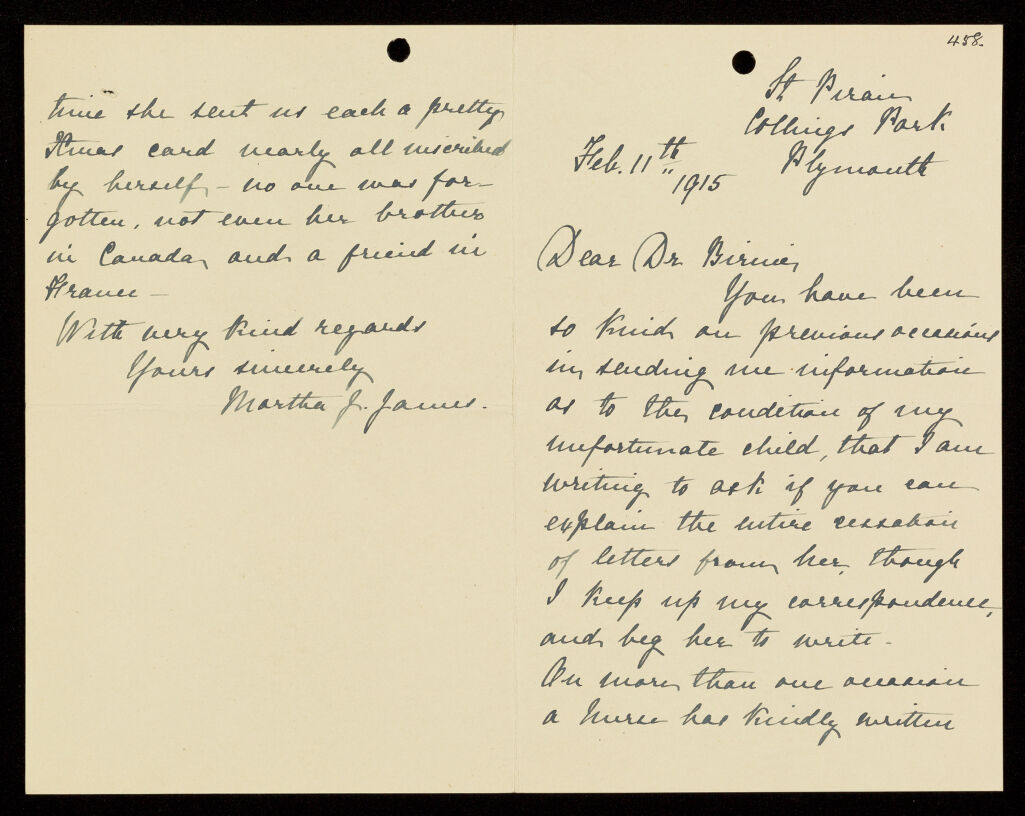 458.
St Piran
Collings Park
Plymouth
Feb. 11th 1915
Dear Dr Birnie,
You have been
so kind on previous occasions
in sending me information
as to the condition of my
unfortunate child, that I am
writing to ask if you can
explain the entire cessation
of letters from her, though
I keep up my correspondence,
and beg her to write -
On more than one occasion
a Nurse has kindly written
time she sent us each a pretty
Xmas card nearly all inscribed
by herself, - no one was for-
gotten, not even her brothers
in Canada, and a friend in
France -
With very kind regards
Yours sincerely
Martha J. James.